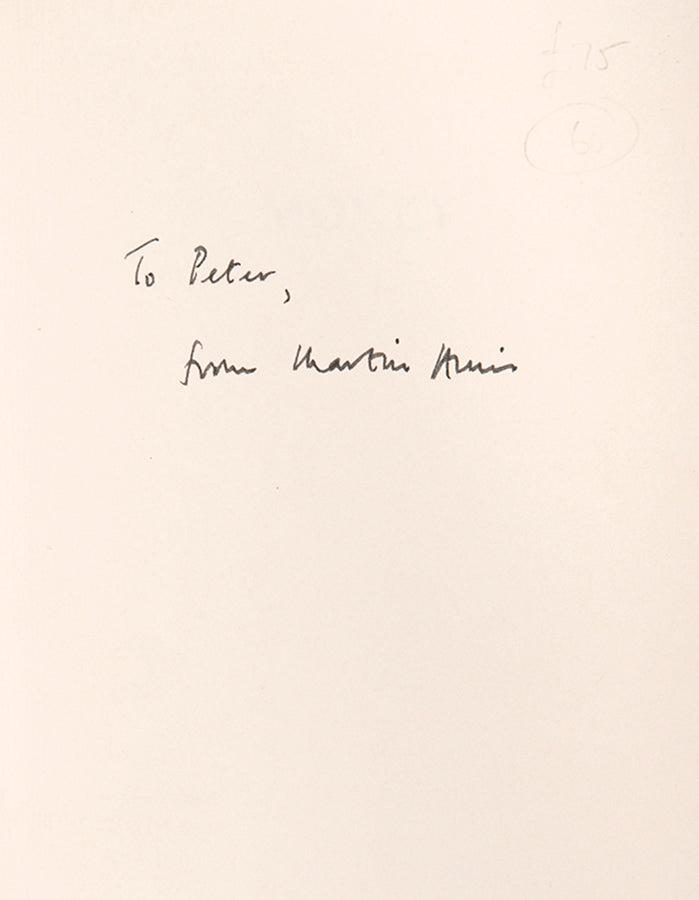 £75
To Peter,
from Martin Amis